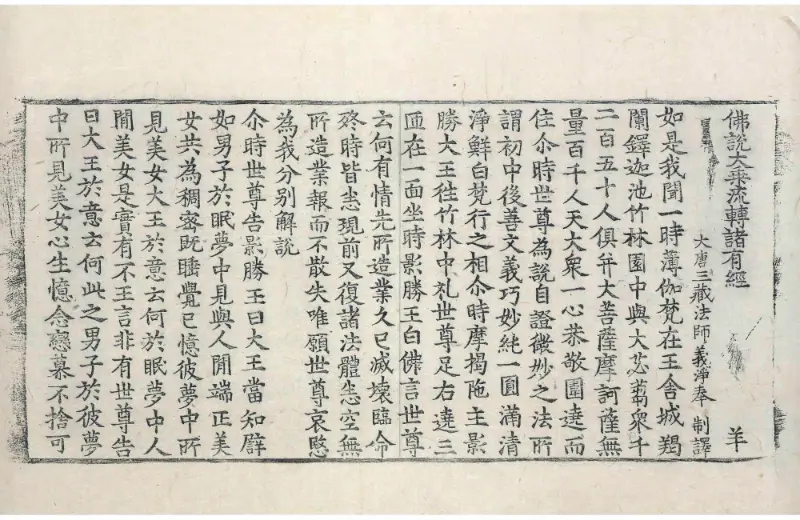 佛說大乘流轉諸有經 羊
大唐三藏法師義淨奉 制譯
如是我聞一時薄伽梵在王舍城羯
闌鐸迦池竹林園中與大苾蒭衆千
二百五十人俱并大菩薩摩訶薩無
量百千人天大衆一心恭敬圍遶而
住尒時世尊為說自證微妙之法所
謂初中後善文義巧妙純一圓滿清
淨鮮白梵行之相尒時摩揭陁主影
勝大王往竹林中礼世尊足右遶三
匝在一面坐時影勝王白佛言世尊
云何有情先所造業久已滅壞臨命
終時皆悉現前又復諸法體悉空無
所造業報而不散失唯願世尊哀愍
為我分別解說
尒時世尊告影勝王曰大王當知譬
如男子於眠夢中見與人閒端正美
女共為稠密既睡覺已憶彼夢中所
見美女大王於意云何於眠夢中人
閒美女是實有不王言非有世尊告
曰大王於意云何此之男子於彼夢
中所見美女心生憶念戀慕不捨可